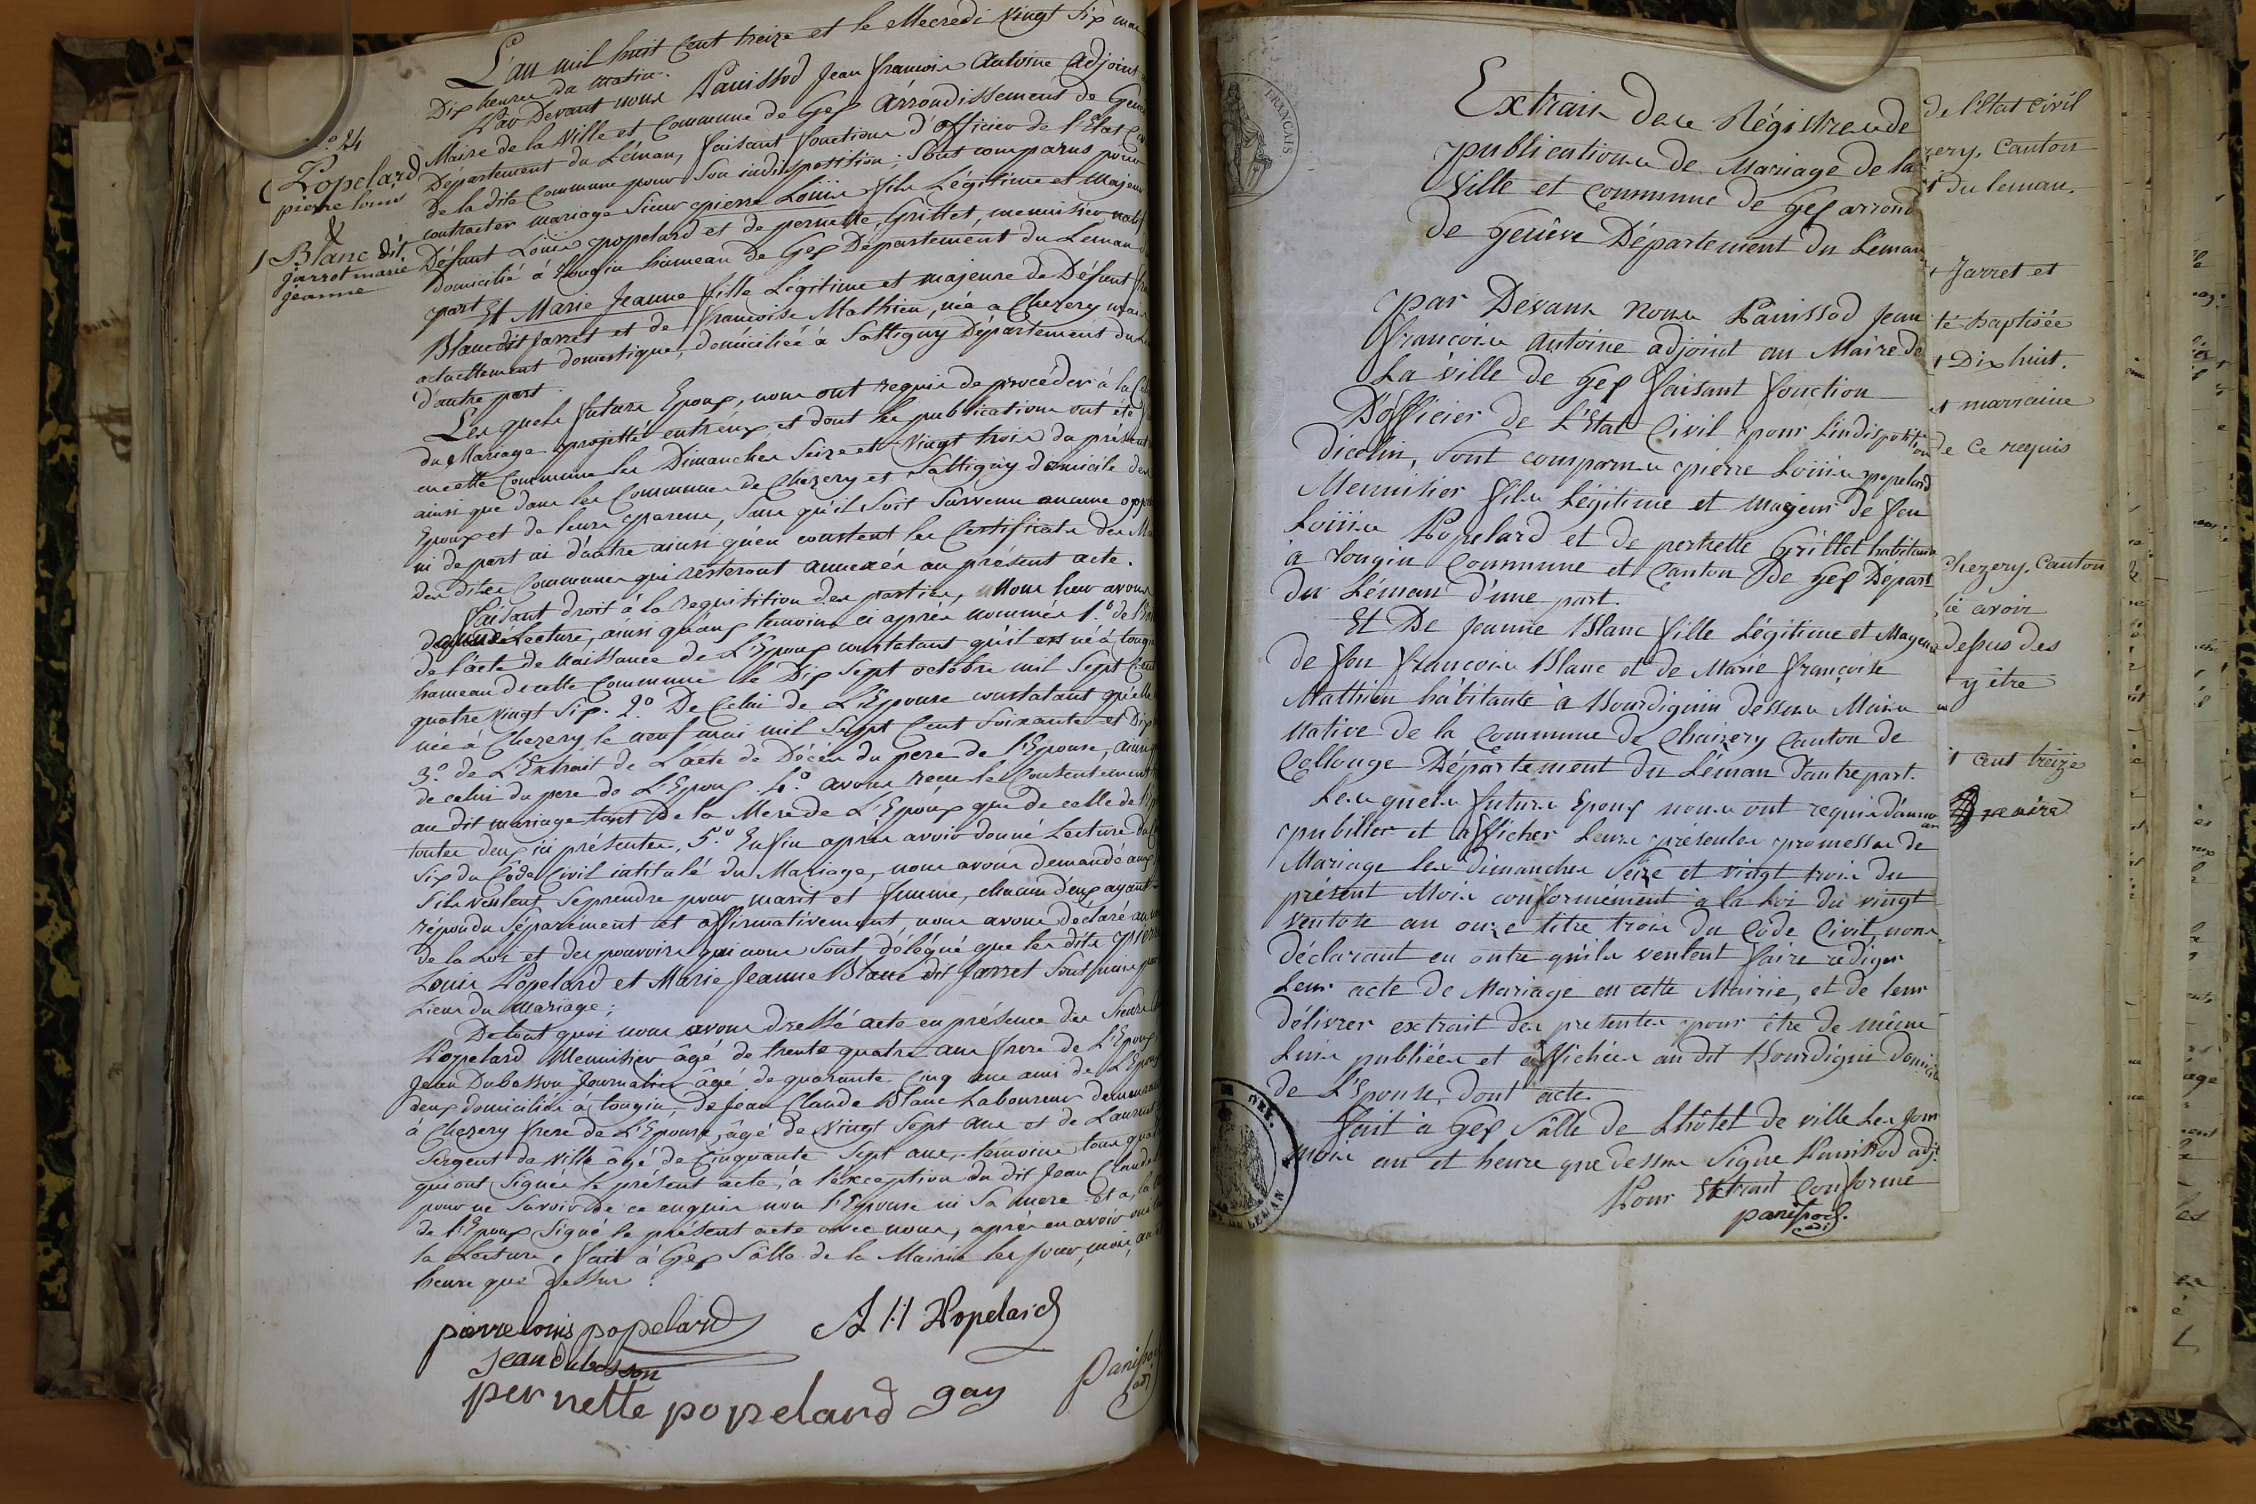 L'an mil huit Cent treize et le Mecredi Vingt Six mai
Dix heures du matin.
Par Devant nous Panissod Jean françois Antoine Adjoint
Maire de la Ville et Commune de Gex Arrondissement de
Département du Léman, faisant fonctions d'officier de l'Etat
de la dite Commune pour Son indisposition; Sont comparus pour
contracter mariage Sieur pierre Louis fils Légitime et Majeur
Défunt Louis popelard et de pernette Grillet, menuisier natif
domicilié à Tougin hameau de Gex Département du Leman
part Et Marie Jeanne fille Légitime et majeure de Défunt
Blanc dit Jarret et de françoise Mathieu, née a Chezery
actuellement domestique, domiciliée à Sattigny Département du
d'autre part.
Les quels futurs Epoux, nous ont requis de procéder à la
du Mariage projetté entr'eux et dont les publications ont été
en cette Commune les Dimanches Seize et Vingt trois du présent
ainsi que dans les Communes de Chezery et Sattigny domicile des
Epoux et de leurs parens, Sans qu'il Soit Survenu aucune
ni de part ni d'autre ainsi qu'en constent les Certificats des
des dites Communes qui resteront annexés au présent acte.
faisant droit à la requisition des parties, Nous leur avons
donné Lecture, ainsi qu'aux témoins ci après nommés 1.° de
de l'acte de Naissance de L'Epoux constatant qu'il est né à tougin
hameau de cette Commune le Dix Sept octobre mil Sept Cent
quatre vingt Six. 2.° De Celui de L'Epouse constatant qu'elle
née à Chezery le neuf mai mil Sept Cent Soixante et Dix
3.° de L'Extrait de L'acte de Décès du pere de l'Epouse, ainsi
de celui du pere de L'Epoux. 4.° avons reçu le Consentement
au dit mariage tant de la Mere de L'Epoux que de celle de
toutes deux ici présentes, 5.° Enfin après avoir donné Lecture du
Six du Côde Civil intitulé du Mariage, nous avons demandé aux
S'ils veulent Se prendre pour mari et femme, chacun d'eux ayant
répondu Séparément et affirmativement nous avons déclaré au
de la Loi et des pouvoirs qui nous Sont délégué que les dits pierre
Louis Popelard et Marie Jeanne Blanc dit Jarret Sont unis par
Liens du Mariage;
De tout quoi nous avons dressé acte en présence des Sieurs
Popelard Menuisier âgé de trente quatre ans frere de L'Epoux
Jean Dubosson Journalier âgé de quarante Cinq ans ami de L'Epoux
deux domiciliés à tougin, De Jean Claude Blanc Laboureur demeurant
à Chezery frere de L'Epouse, âgé de Vingt Sept ans et de Laurent
Sergent de Ville âgé de Cinquante Sept ans, témoins tous
qui ont Signés le présent acte, à l'exception du dit Jean Claude
pour ne Savoir de ce enquis non l'Epouse ni Sa mere et a, la
de l'Epoux Signé le présent acte avec nous, après en avoir oui
la Lecture, fait à Gex Salle de la Mairie les Jour, mois, an
heure que dessus.
pierre louis popelard
Popelard
Jean dubosson
pernette popelard gay
N.° 24
Popelard
pierre louis
&
Blanc dit
jarrot marie
jeanne
FRANÇAIS
Extrait des Régistres de
publications de Mariage de la
Ville et Commune de Gex arrond
de Genêve Département du Léman
par Devant Nous Panissod Jean
françois Antoine adjoint au Maire de
La Ville de Gex faisant fonction
D'officier de L'Etat Civil pour l'indisposition
dicelui, Sont comparus pierre Louis popelard
Menuisier fils Légitime et majeur de feu
Louis Popelard et de pernette Grillet habitans
à Tougin Commune et Canton de Gex Départ
du Léman d'une part.
Et De Jeanne Blanc fille Légitime et Majeure
de feu françois Blanc et de Marie françoise
Mathieu habitante à Bourdignin dessus Mais
Native de la Commune de Chaizery Canton de
Collonge Département du Léman d'autre part.
Les quels futurs Epoux nous ont requis d'annoncer
publier et afficher Leurs présentes promesses de
Mariage les dimanches Seize et vingt trois du
présent Mois conformément à la Loi du vingt
Ventose an onze titre trois du Côde Civil, nous
déclarant en outre qu'ils veulent faire rédiger
Leur acte de Mariage en cette Mairie, et de leur
délivrer extrait des présentes pour être de même
Lues publiées et affichées au dit Bourdignin Domicile
de L'Epouse, dont acte.
fait à Gex Salle de Lhôtel de ville Les Jour
mois an et heure que dessus Signé Panissod adj.
Pour Extrait Conforme
panissod
adj
LEMAN
de l'Etat Civil
Canton
du leman.
Jarret et
té baptisée
Dix huit.
marraine
de ce requis
Chezery, Canton
avoir
dessus des
y être
cent treize